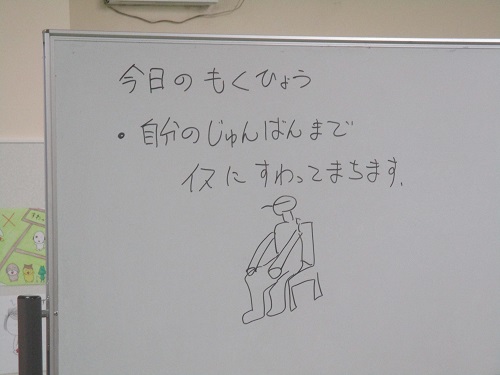 今日のもくひょう
• 自分のじゅんばんまで
イスにすわってまちます.